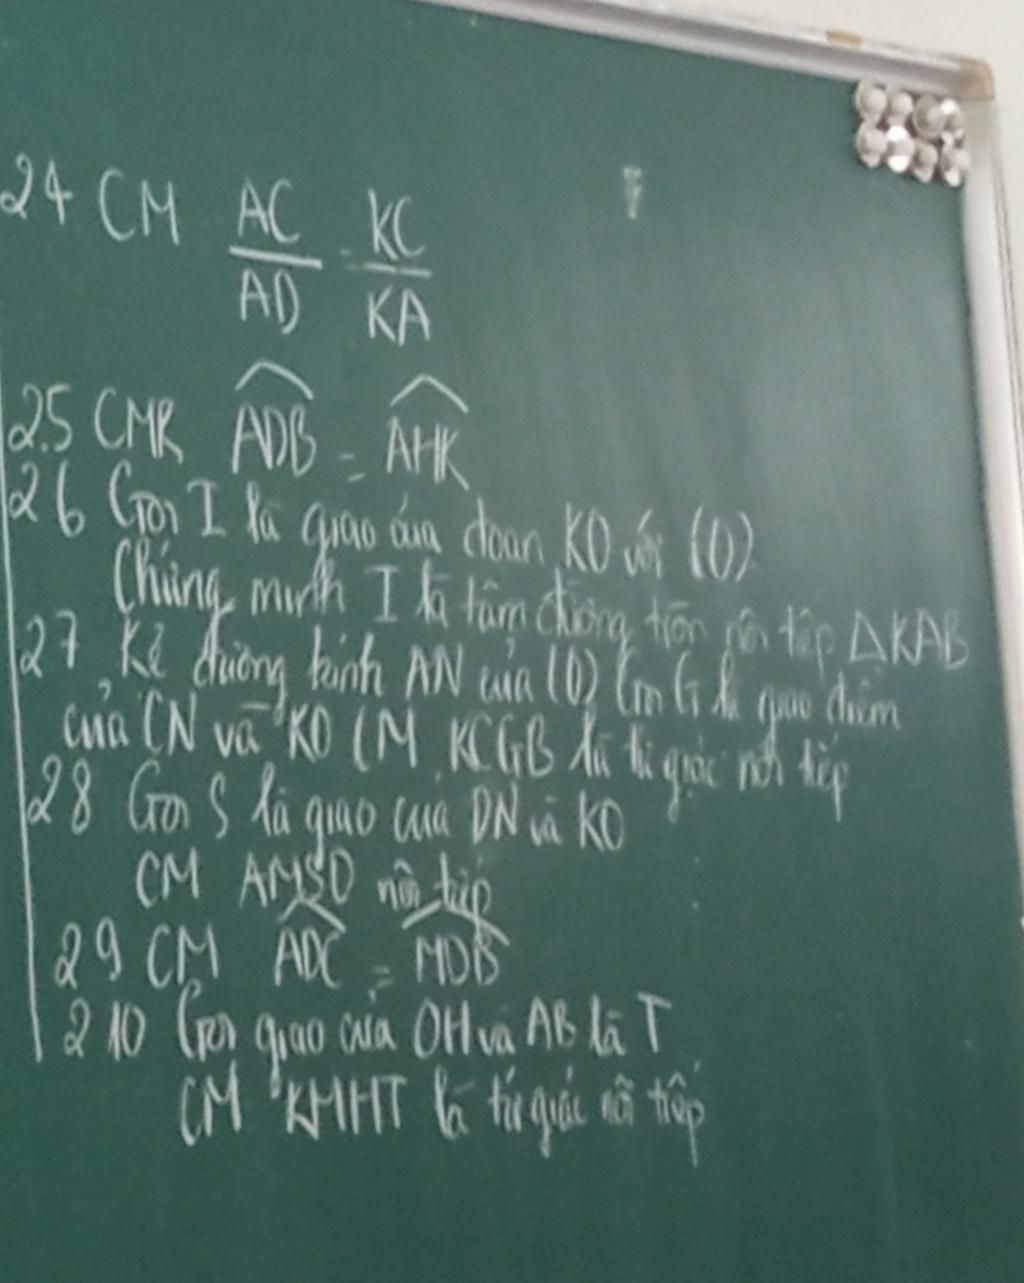 24 CM AC/AD = KC/KA
2.5 CMR ADB = AHK
26 Gọi I là giao của đoạn KO với (O).
Chứng minh I là tâm đường tròn nội tiếp ΔKAB
27 Kẻ đường kính AN của (O) Gọi G là giao điểm
của CN và KO CM KCGB là tứ giác nội tiếp
28 Gọi S là giao của DN và KO
CM AMSO nội tiếp
29 CM ADC = MDB
210 Gọi giao của OH và AB là T
CM KMHT là tứ giác nội tiếp